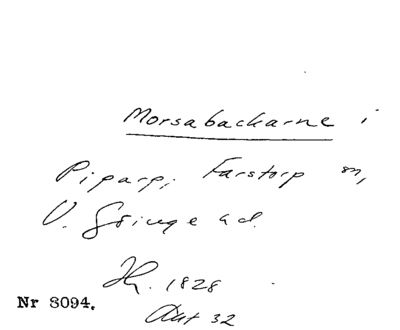 Morsabackarne i
Farstorp sn,
V. Göinge hd.
1828
32
Nr 8094.